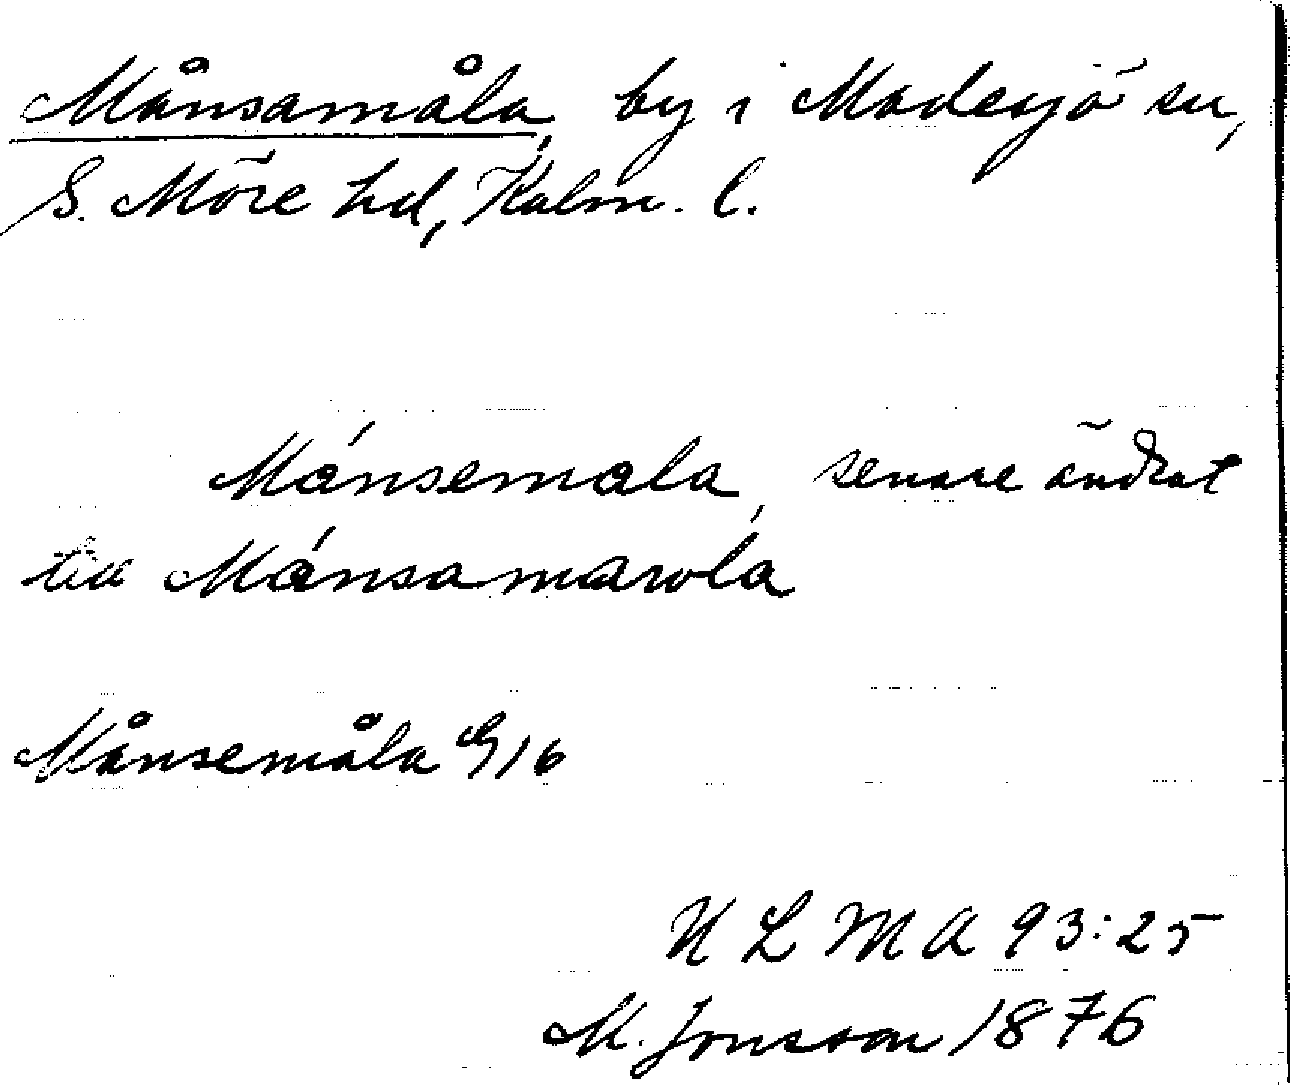 Månsamåla, by i Madesjö sn,
S. Möre hd, Kalm. l.
Mánsemala, senare ändrat
till Mánsamarola
Månsemåla G 16
ULMA 93:25
M. Jonsson 1876